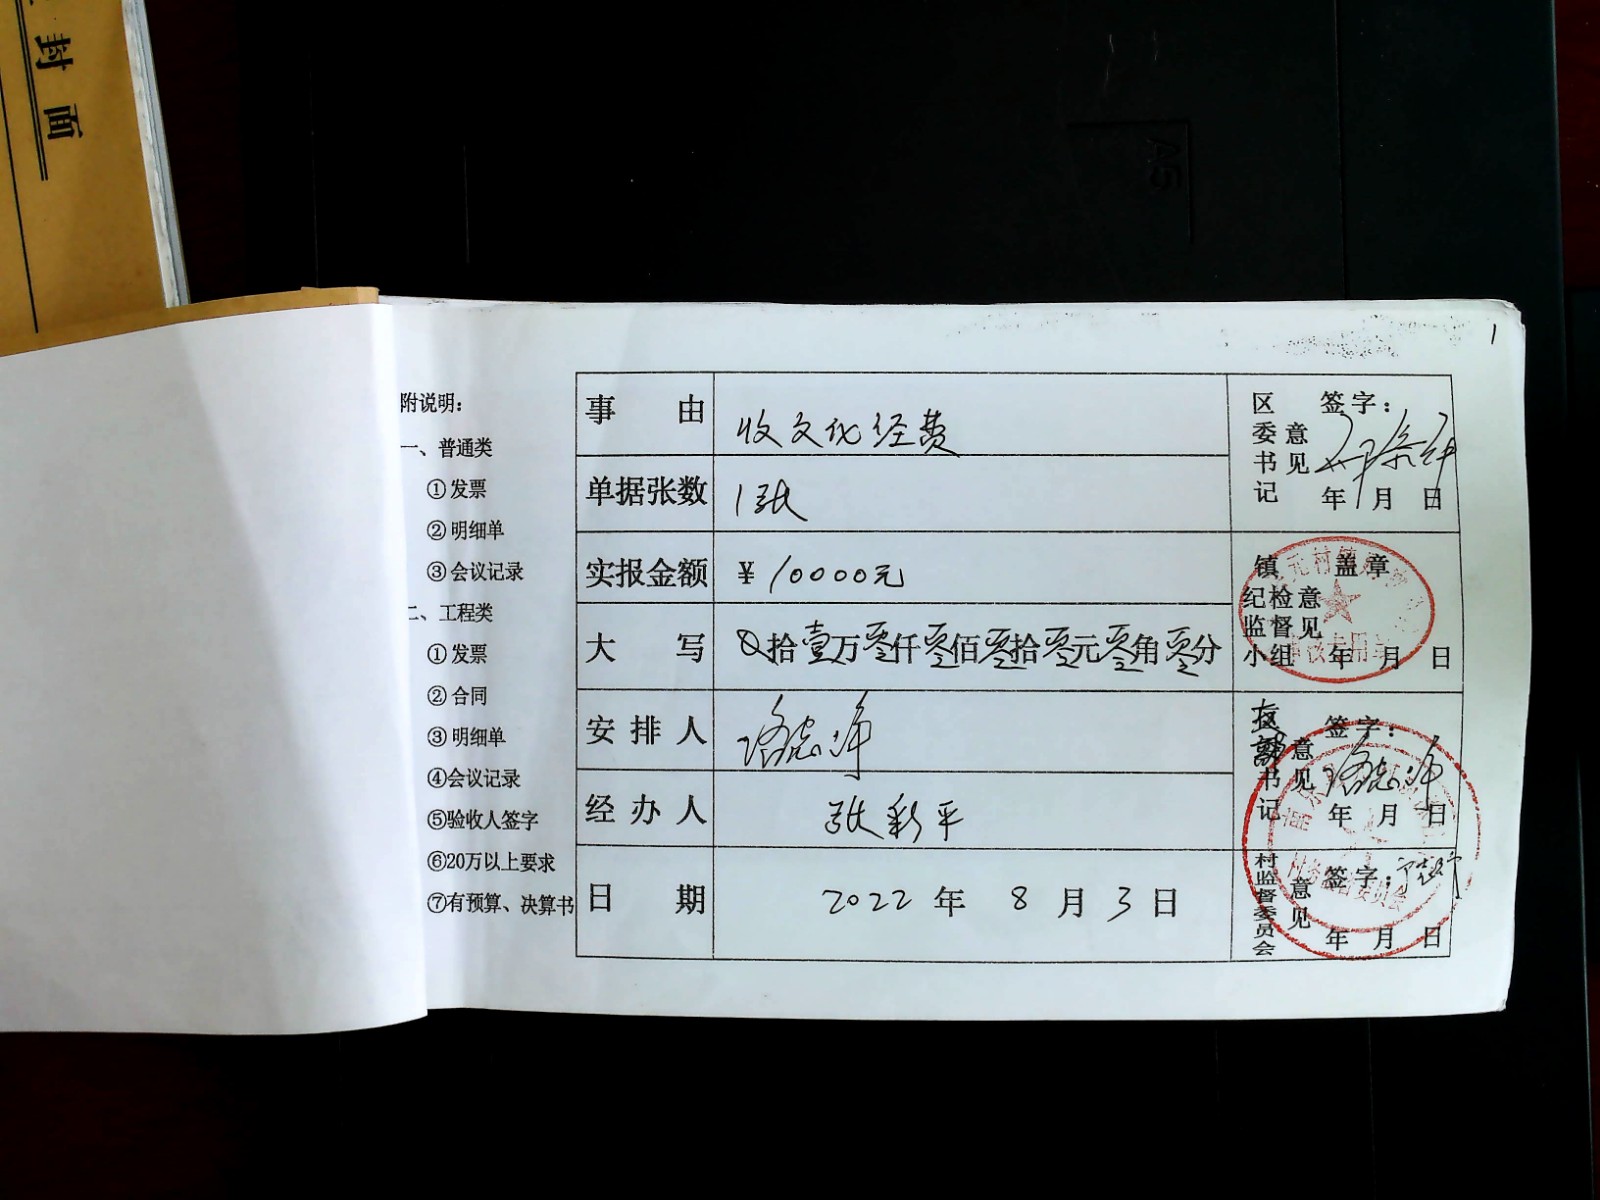 封面
A5
1
附说明:
一、普通类
①发票
②明细单
③会议记录
二、工程类
①发票
②合同
③明细单
④会议记录
⑤验收人签字
⑥20万以上要求
⑦有预算、决算书
事由 收文化经费
单据张数 1张
实报金额 ¥10000元
大写 ⊗拾壹万零仟零佰零拾零元零角零分
安排人
经办人 张彩平
日期 2022年8月3日
区委书记意见 签字:
年月日
镇纪检监督小组意见 盖章
年月日
书记意见 签字:
年月日
村监督委员会意见 签字:
年月日